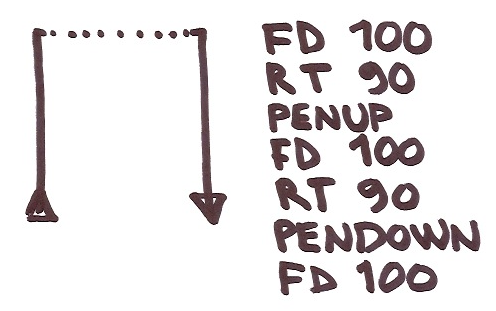 FD 100
RT 90
PENUP
FD 100
RT 90
PENDOWN
FD 100